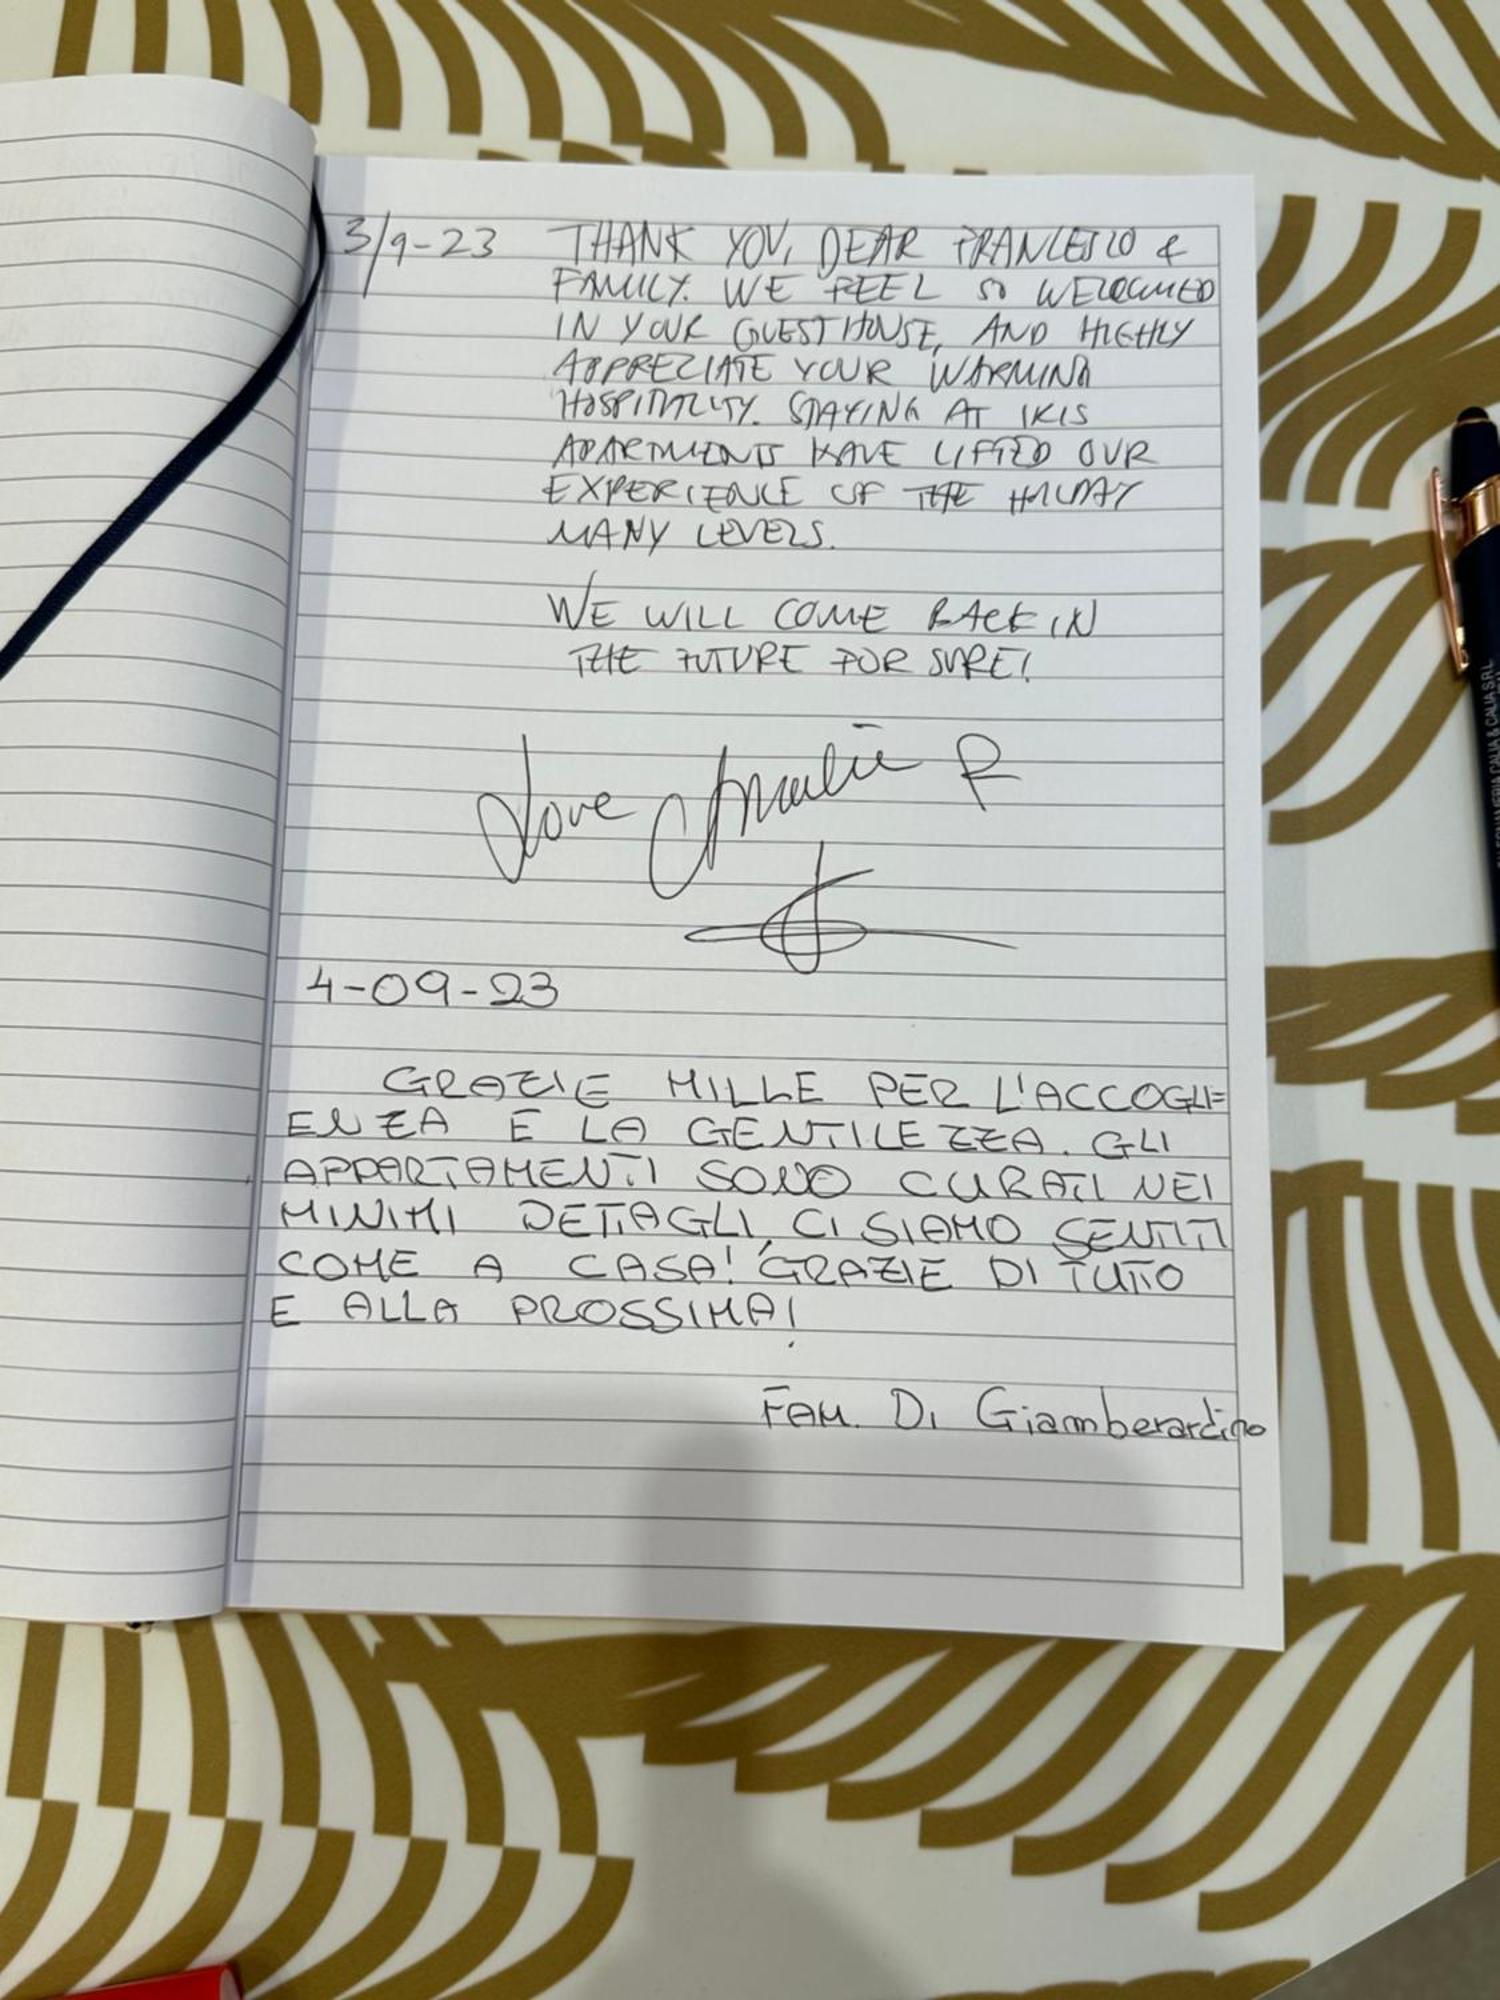 3/9-23 THANK YOU, DEAR FRANCESCO &
FAMILY. WE FEEL SO WELCOMED
IN YOUR GUESTHOUSE, AND HIGHLY
APPRECIATE YOUR WARMING
HOSPITALITY. STAYING AT IKIS
APARTMENTS HAVE LIFTED OUR
EXPERIENCE OF THE HOLIDAY
MANY LEVELS.
WE WILL COME BACK IN
THE FUTURE FOR SURE!
Love Amalie R
4-09-23
GRAZIE MILLE PER L'ACCOGLI=
ENZA E LA GENTILEZZA. GLI
APPARTAMENTI SONO CURATI NEI
MINIMI DETTAGLI, CI SIAMO SENTITI
COME A CASA! GRAZIE DI TUTTO
E ALLA PROSSIMA!
FAM. Di Giamberardino
FALEGNAMERIA CALIA & CALIA S.R.L.